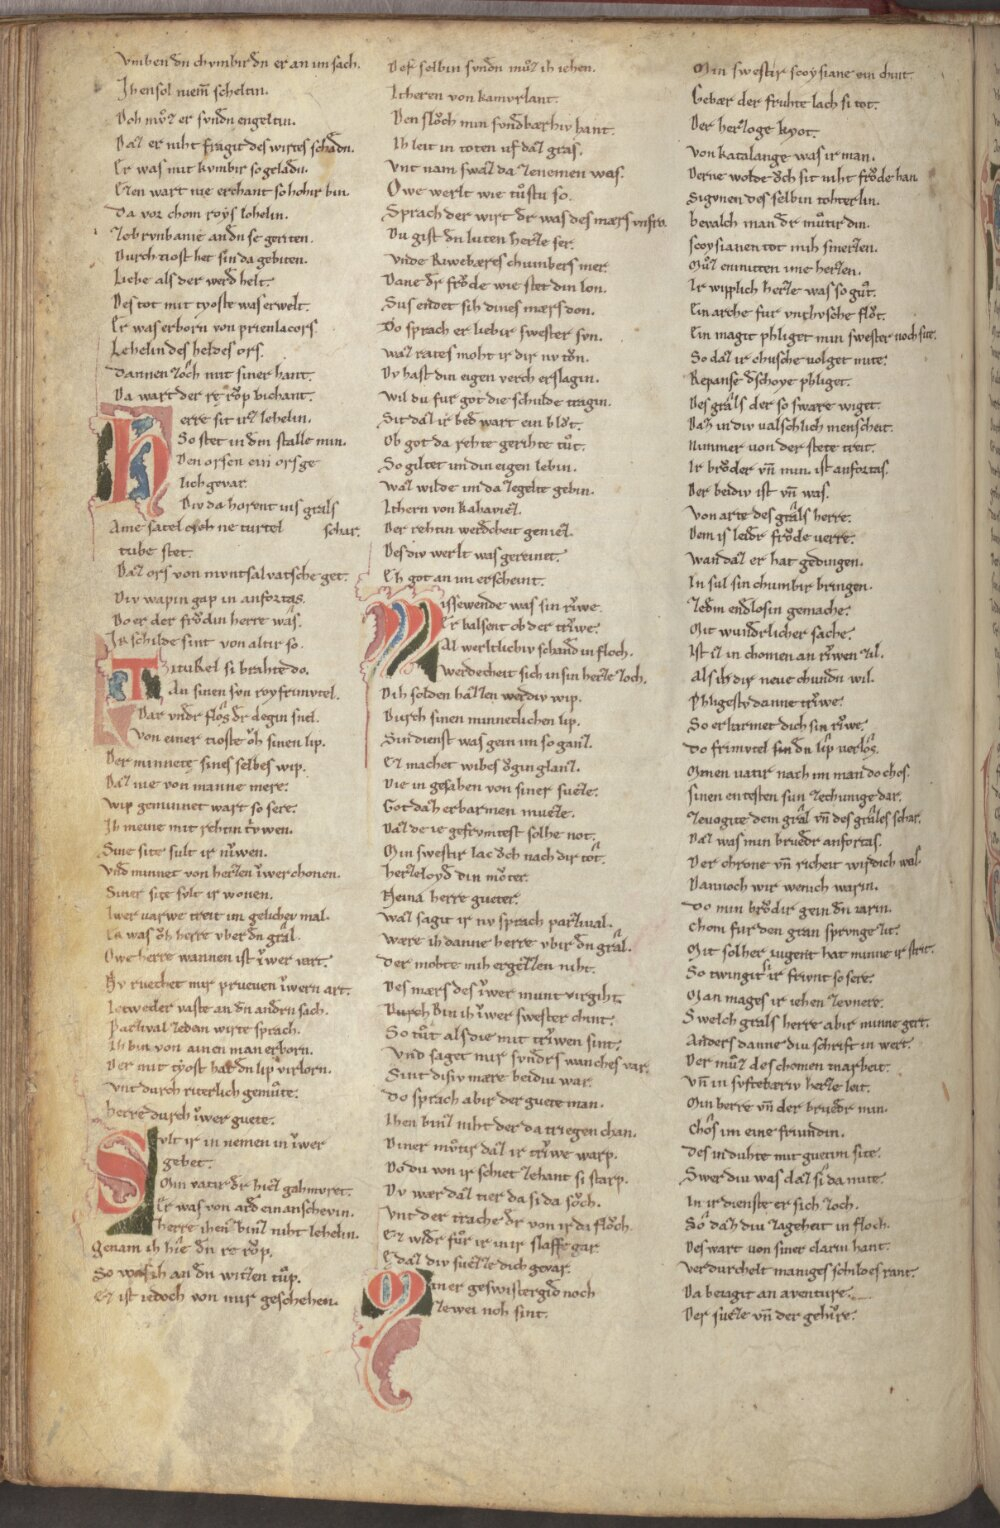 Vmben dn chvmbir dn er an im sach.
Ih ensol niem̄ scheltin.
Doh mvͦz er svndn engeltin.
Daz er niht fragit des wirtes schadn.
Er was mit kvmbir so geladn.
Ezen wart nie erchant so hohir bin.
Da vor chom roys lehelin.
Zobrvnbanie andn se geriten.
Durch tiost het sin da gebiten.
Liebe als der werd helt.
Des tot mit tyoste was erwelt.
Er was erborn von prienlacors
Lehelin des heldes ors.
Dannen zoͮch mit siner hant.
Da wart der re roͮp bichant.
Herre sit irz lehelin.
So stet in dm stalle min.
Den orsen ein ors ge
lich gevar.
Div da horent ins grals
schar.
Ame satel ovch ne turtel
tube stet.
Daz ors von mvntsalvatsche get.
Div wapin gap in anfortas.
Do er der froͮdin herre was.
Ir schilde sint von altir so.
Titurel si brahte do.
An sinen svn roy frimvtel.
Dar vndr flos dr degin snel.
Von einer tioste oͮh sinen lip.
Der minnete sines selbes wip.
Daz nie von manne mere.
Wip geminnet wart so sere.
Ih meine mit rehtin trywen.
Sine site sult ir niwen.
Vnd minnet von herzen iwer chonen.
Siner site svlt ir wonen.
Iwer varwe treit im gelichev mal.
Er was oͮh herre vber dn gral.
Owe herre wannen ist iwer vart.
Nv ruechet mir prueven iwern art.
Ietweder vaste an dn andrn sach.
Parzival zedem wirte sprach.
Ih bin von ainen man erborn.
Der mit tyost hat dn lip virlorn.
Vnt durch ritterlich gemuͤte.
herre durch iwer guete.
Svlt ir in nemen in iwer
gebet.
Min vatir dr hiez gahmvret.
Er was von ard ein anschevin.
herre ihen binz niht lehelin.
Genam ih hie dn re roͮp.
So was ih an dn witzen tuͦp.
Ez ist iedoch von mir geschehen.
Def selbin svndn muͦz ih iehen.
Itheren von kamvrlant.
Den sloͮch min svndbærhiv hant.
Ih leit in toten uf daz gras.
Vnt nam swaz da zenemen was.
Owe werlt wie tuͦstu so.
Sprach der wirt dr was des mærs vnfro.
Du gist dn luten herze ser.
Vnde Riwebæres chumbers mer.
Dane dr froͮde wie stet din lon.
Sus endet sih dines mærs don.
Do sprach er liebir swester svn.
waz rates moht ir dir nv tvͦn.
Dv hast din eigen verch erslagin.
Wil du fur got die schulde tragin.
Sit daz ir bed wart ein bloͮt.
Ob got da rehte gerihte tuͦt.
So giltet im din eigen lebin.
Waz wilde im da zegelte gebin.
Ithern von kahaviez.
Der rehtin werdcheit geniez.
Des div werlt was gereinet.
Eh got an im erscheint.
Missewende was sin riwe.
Er balsent ob der triwe.
Al werltlichiv schand in floch.
Werdecheit sich in sin herze zoch.
Dih solden hazzen werdiv wip.
Durch sinen minnetlichen lip.
Sin dienst was gein im so ganz.
Ez machet wibes oͮgin glanz.
Die in gesahen von siner sueze.
Got daz erbarmen mueze.
Daz de ie gefrvmtest solhe not.
Min swestir lac oͮch nach dir tot.
herzeloyd din moͮter.
Neina herre gueter.
Waz sagit ir nv sprach parzival.
Wære ih danne herre vbir dn gral.
Der mohte mih ergezzen niht.
Des mærs des iwer munt virgiht.
Durch Bin ih iwer swester chint.
So tuͦt als die mit triwen sint.
Vnd saget mir svndrs wanches var.
Sint disiv mære beidiv war.
Do sprach abir der guete man.
Ihen binz niht der da triegen chan.
Diner mvͦtir daz ir triwe warp.
Do du von ir schiet zehant si starp.
Dv wær daz tier da si da soͮch.
Vnt der trache dr von ir da floͮch.
Ez widr fuͦr ir in ir slaffe gar.
E daz div sueze dich gebar.
Miner geswistergid noch
zewei noh sint.
Min swestir scoysiane ein chint.
Gebær der fruhte lach si tot.
Der herzoge kyot.
Von katalange was ir man.
Derne wolde oͮch sit niht froͮde han.
Sigvnen des selbin tohterlin.
bevalch man dr muͦtir din.
scoysianen tot mih smerzen.
Muͦz enmitten ime herzen.
Ir wiplich herze was so guͦt.
Ein arche fur vnchvsche floͮt.
Ein magit phliget min swester noch site.
So daz ir chusche volget mite.
Repanse dschoye phliget.
Des grals der so sware wiget.
Daz in div valschlich menscheit.
nimmer von der stete treit.
Ir broͮder vn̄ min. ist anfortas.
Der beidiv ist vn̄ was.
Von arte des grals herre.
Dem is leidr froͮde verre.
Wan daz er hat gedingen.
In sul sin chumbir bringen.
Zedm endlosin gemache.
Mit wundrlicher sache.
Ist iz in chomen an riwen zil.
Als ih dir neve chundn wil.
Phligestv danne triwe.
So erbarmet dich sin riwe.
Do frimvtel sin dn lip verlos.
Minen vatir nach im man do chos.
Sinen entesten sun zechunige dar.
Zevogite dem gral vn̄ des grales schar.
Daz was min bruedr anfortas.
Der chrone vn̄ richeit wirdich was.
Dannoch wir wenich warin.
Do min broͮdir gein dn iarin.
Chom fur den gran sprvnge zit.
Mit solher iugent hat minne ir strit.
So twingit sir frivnt so sere.
Man mages ir iehen zevnere.
Swelch grals herre abir minne gert.
Anders danne div schrift in wert.
Der muͦz des chomen in arbeit.
Vn̄ in syftebæriv herze leit.
Min herre vn̄ der bruedr min.
Chos im eine friundin.
Des in duhte mit guetim site.
Swer div was daz si da mite.
In ir dienste er sich zoch.
So daz div zageheit in floch.
Des wart von siner clarin hant.
Verdurchelt maniges schildes rant.
Da beiagit an aventure.
Der sueze vn̄ der gehiͮre.